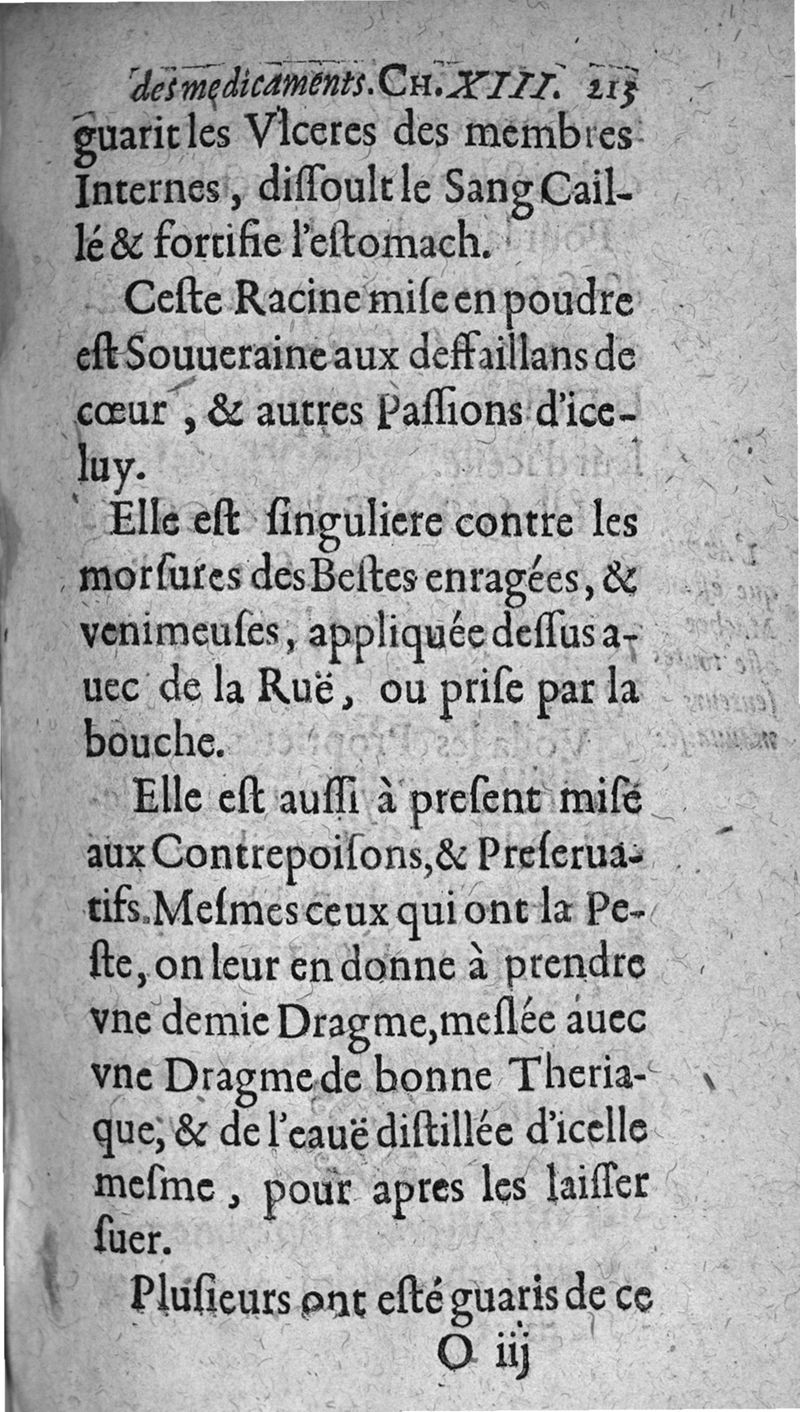 des medicaments. CH. XIII. 215
guarit les Vlceres des membres
Internes, diſſoult le Sang Cail-
lé & fortifie l'eſtomach.
Ceſte Racine miſe en poudre
eſt Souueraine aux deffaillans de
cœur, & autres Paſſions d'ice-
luy.
Elle eſt ſinguliere contre les
morſures des Beſtes enragées, &
venimeuſes, appliquée deſſus a-
uec de la Ruë, ou priſe par la
bouche.
Elle eſt auſſi à preſent miſe
aux Contrepoiſons, & Preſerua-
tifs. Meſmes ceux qui ont la Pe-
ſte, on leur en donne à prendre
vne demie Dragme, meſlée auec
vne Dragme de bonne Theria-
que, & de l'eauë diſtillée d'icelle
meſme, pour apres les laiſſer
ſuer.
Pluſieurs ont eſté guaris de ce
O iij